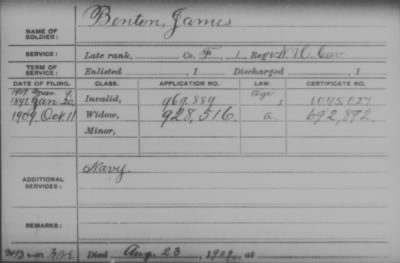 NAME OF SOLDIER: Benton, James
SERVICE: Late rank, Co. F, 1 Reg't N. H. Cav
TERM OF SERVICE: Enlisted , 1 Discharged , 1
DATE OF FILING. CLASS. APPLICATION NO. LAW. CERTIFICATE NO.
1891 Jan 20, Invalid, 969,889
1909. Oct. 11 Widow, 928,516 a 692,892
Minor,
ADDITIONAL SERVICES: Navy.
REMARKS:
Died Aug. 23, 1909, at